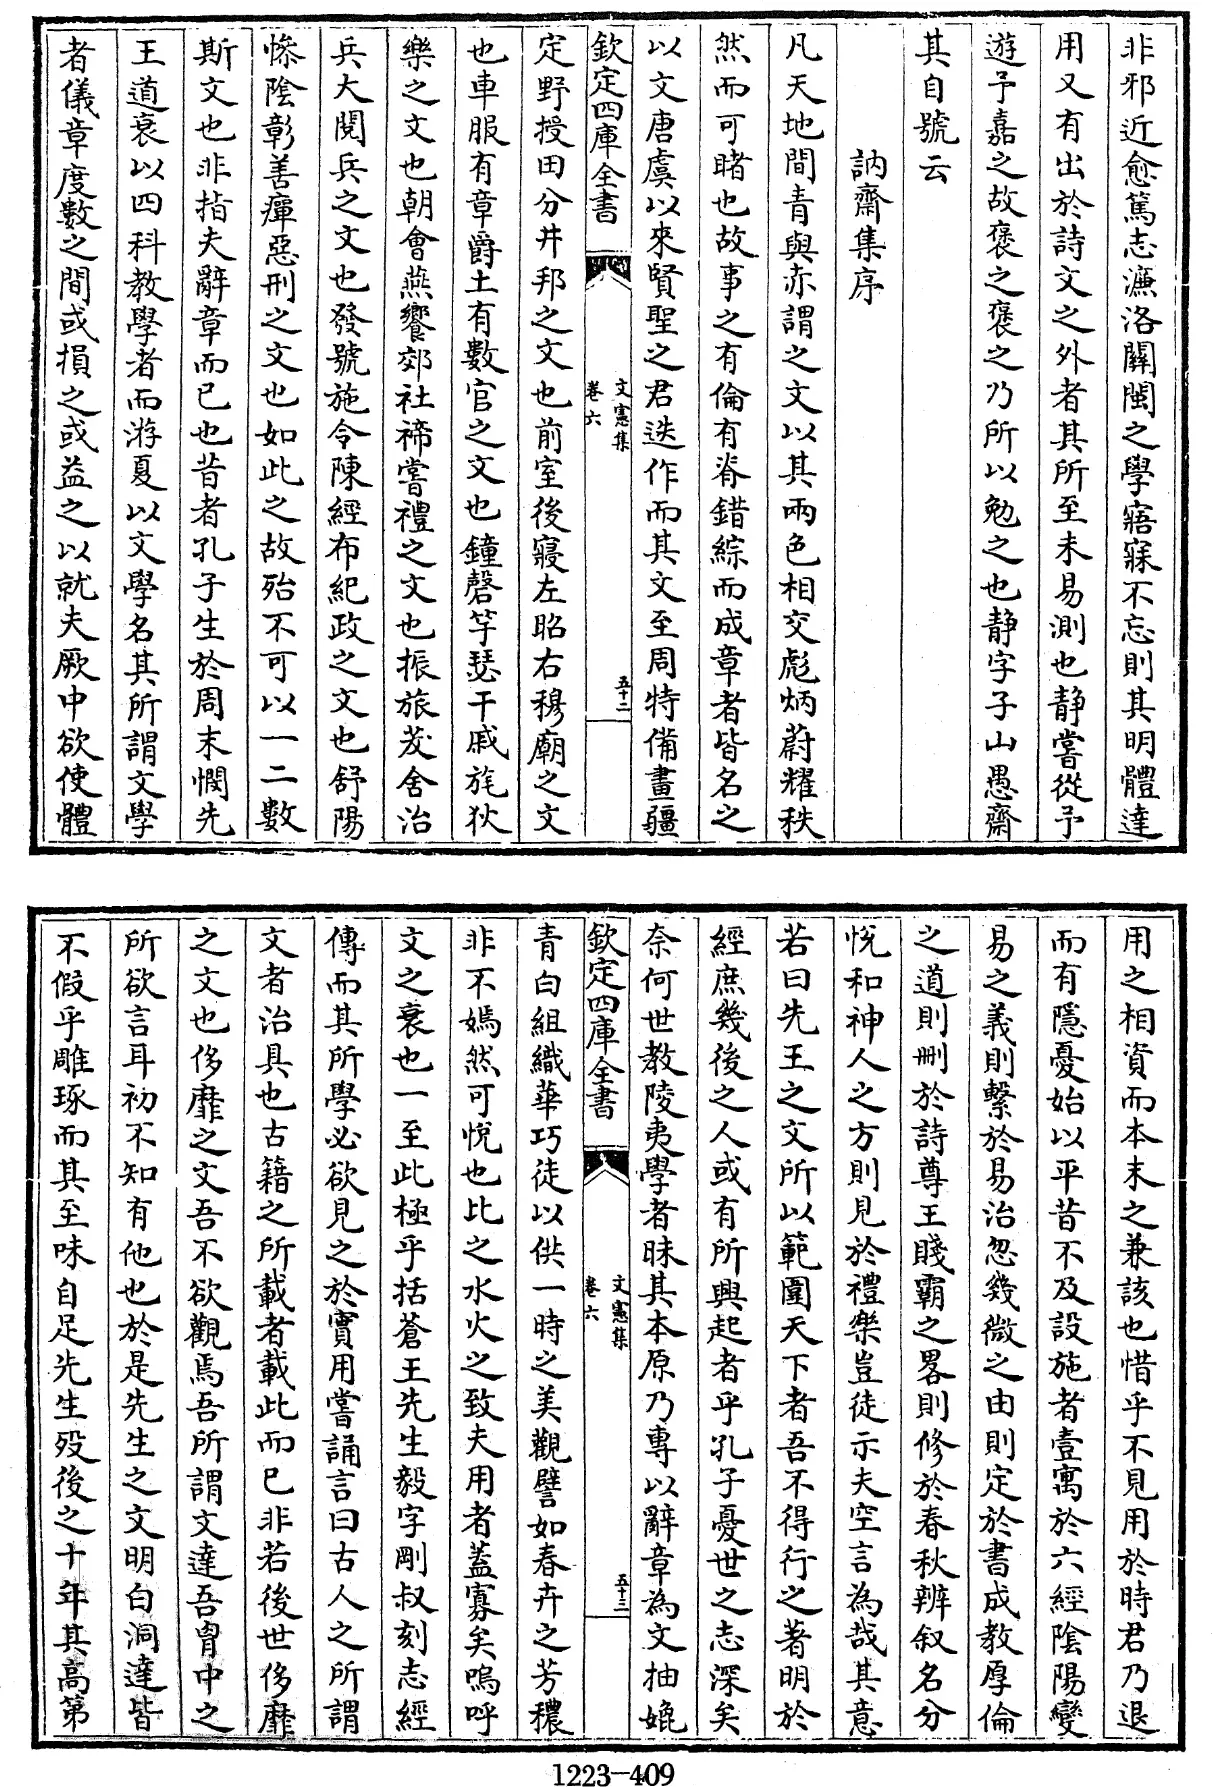 非邪近愈篤志濂洛關閩之學寤寐不忘則其明體達
用又有出於詩文之外者其所至未易測也靜嘗從予
遊予嘉之故褒之褒之乃所以勉之也靜字子山愚齋
其自號云
訥齋集序
凡天地間青與赤謂之文以其兩色相交彪炳蔚耀秩
然而可睹也故事之有倫有脊錯綜而成章者皆名之
以文唐虞以來賢聖之君迭作而其文至周特備畫疆
欽定四庫全書
文憲集
卷六
五十二
定野授田分井邦之文也前室後寢左昭右穆廟之文
也車服有章爵土有數官之文也鐘磬竽瑟干戚旄狄
樂之文也朝會燕饗郊社禘嘗禮之文也振旅茇舍治
兵大閱兵之文也發號施令陳經布紀政之文也舒陽
慘陰彰善癉惡刑之文也如此之故殆不可以一二數
斯文也非指夫辭章而已也昔者孔子生於周末憫先
王道衰以四科教學者而游夏以文學名其所謂文學
者儀章度數之間或損之或益之以就夫厥中欲使體
用之相資而本末之兼該也惜乎不見用於時君乃退
而有隱憂始以平昔不及設施者壹寓於六經陰陽變
易之義則繫於易治忽幾微之由則定於書成教厚倫
之道則刪於詩尊王賤霸之畧則修於春秋辨叙名分
悅和神人之方則見於禮樂豈徒示夫空言為哉其意
若曰先王之文所以範圍天下者吾不得行之著明於
經庶幾後之人或有所興起者乎孔子憂世之志深矣
奈何世教陵夷學者昧其本原乃專以辭章為文抽媲
欽定四庫全書
文憲集
卷六
五十三
青白組織華巧徒以供一時之美觀譬如春卉之芳穠
非不嫣然可悅也比之水火之致夫用者蓋寡矣嗚呼
文之衰也一至此極乎括蒼王先生毅字剛叔刻志經
傳而其所學必欲見之於實用嘗誦言曰古人之所謂
文者治具也古籍之所載者載此而已非若後世侈靡
之文也侈靡之文吾不欲觀焉吾所謂文達吾胷中之
所欲言耳初不知有他也於是先生之文明白洞達皆
不假乎雕琢而其至味自足先生歿後之十年其高第
1223-409